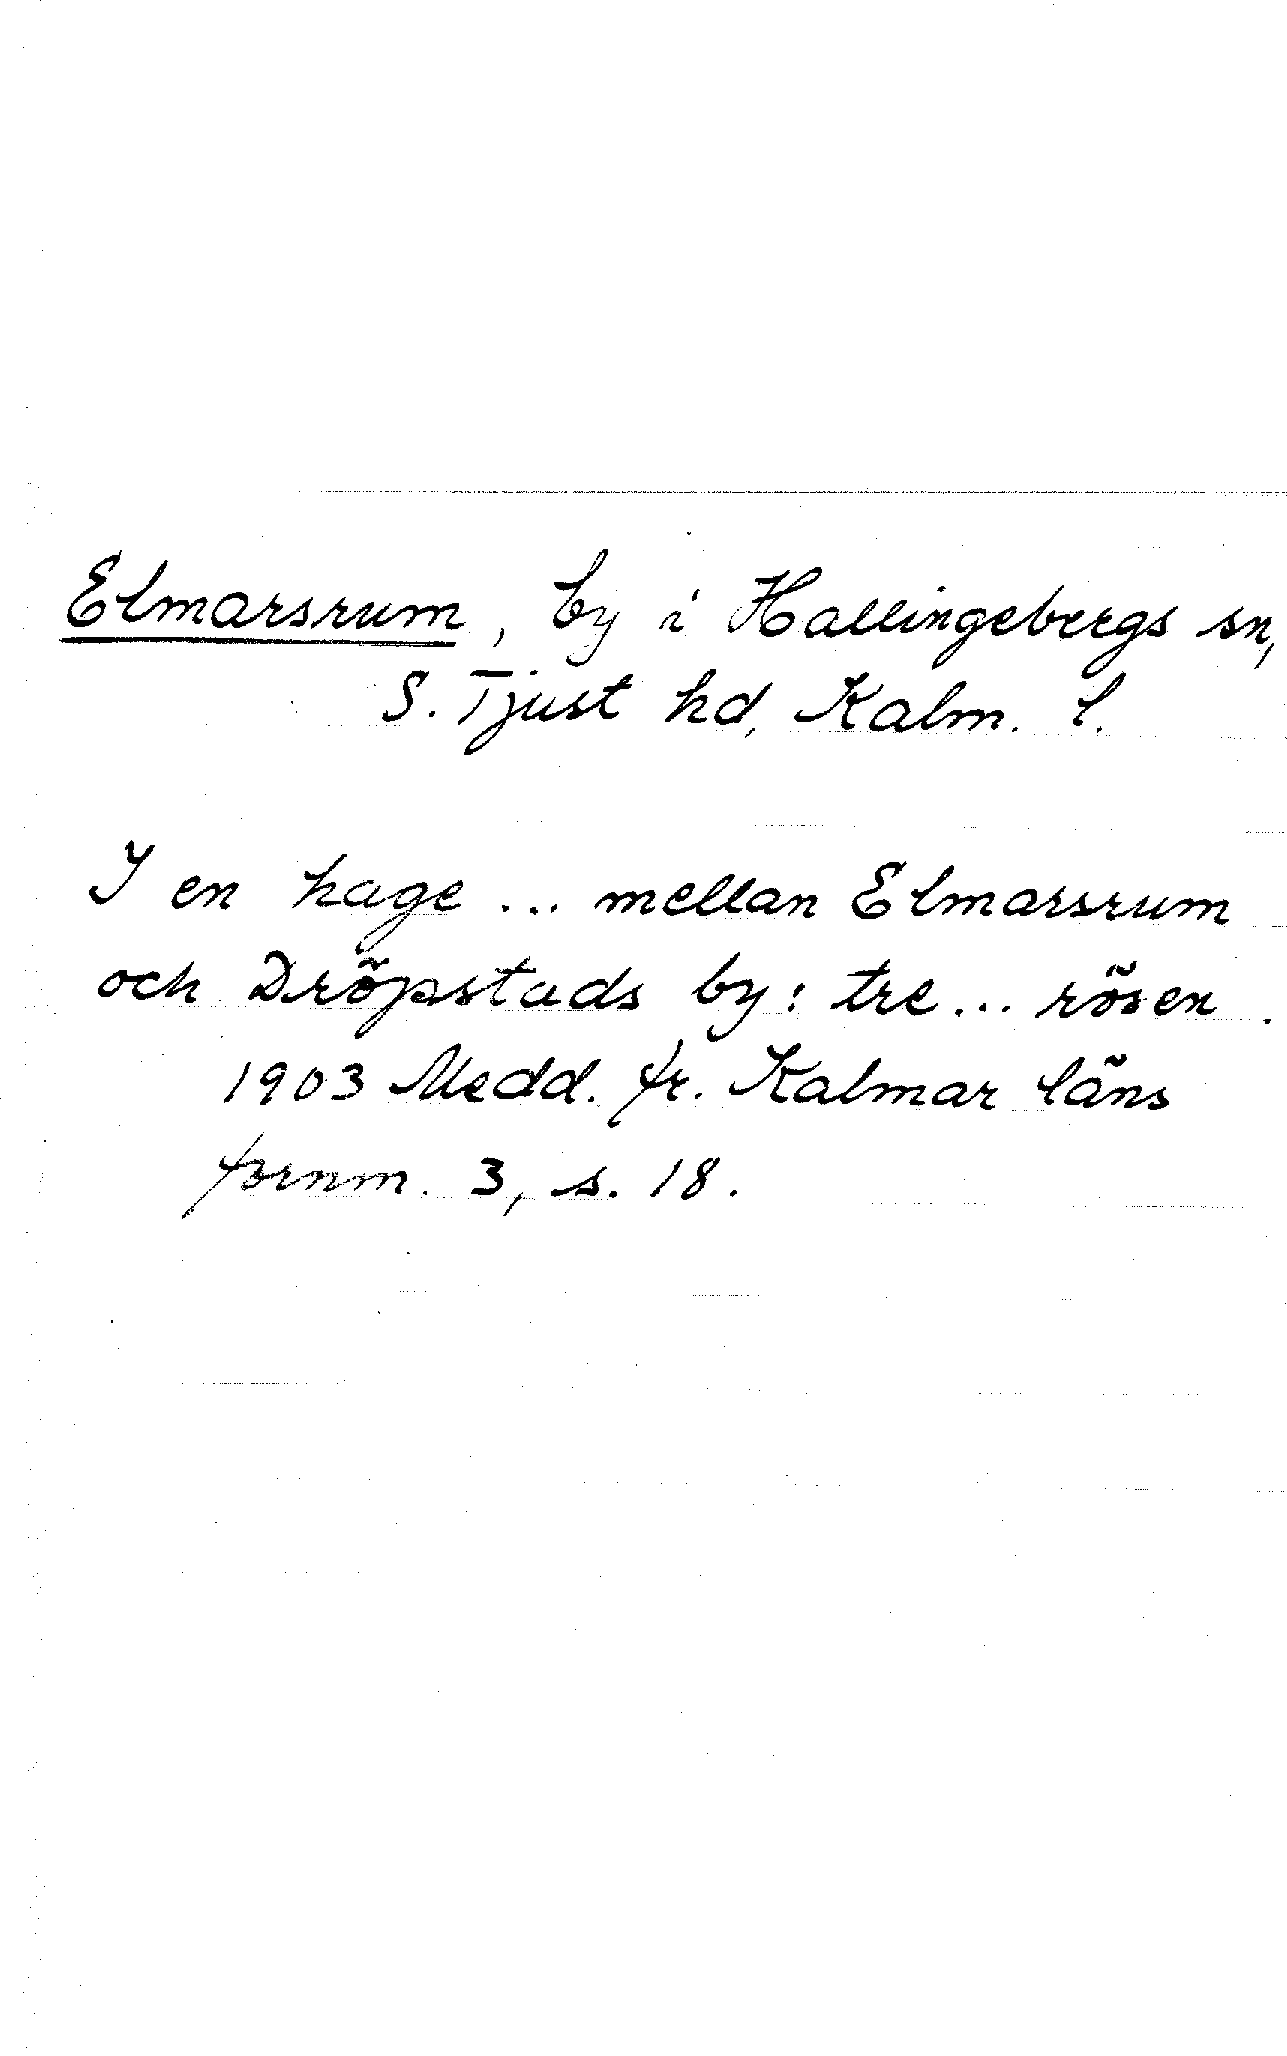 Elmarsrum, by i Hallingebergs sn,
S. Tjust hd, Kalm. l.
I en hage ... mellan Elmarsrum
och Dröpstads by: tre ... rösen.
1903 Medd. fr. Kalmar läns
fornm. 3, s. 18.